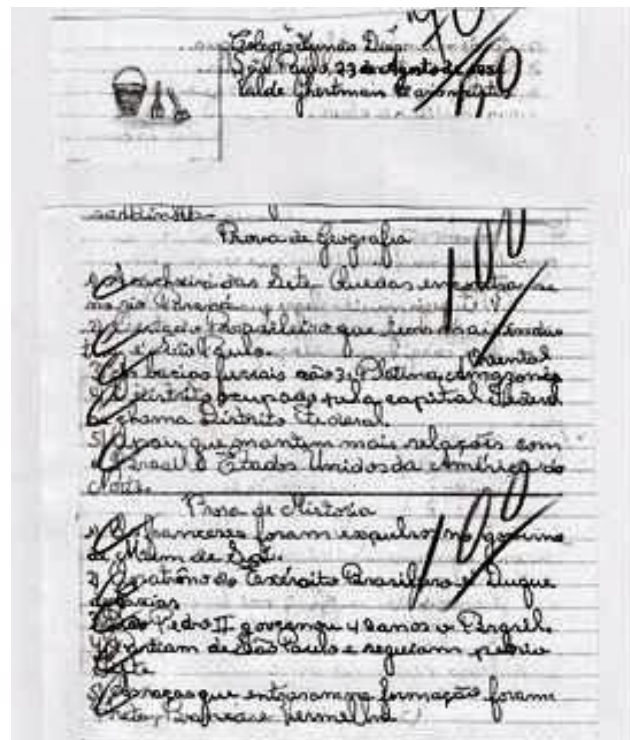 100
Colégio Dias
São Paulo, 23 de Agosto de 195
100
Prova de Geografia
100
1) A cachoeira das Sete Quedas encontra se
no rio Paraná
2) O estado brasileiro que tem mais indus
é São Paulo.
Oriental
3) As bacias fuviais são 3: Platina, Amazonia
4) O distrito ocupado pela capital federal
chama Distrito Federal.
5) O pais que mantem mais relações com
o Brasil é Estados Unidos da América do
Norte.
Prova de História
100
1) Os franceses foram expulsos no governo
de Mem de Sá.
2) O patrôno do Exército Brasileiro é Duque
de Caxias
3) Dom Pedro II governou 48 anos o Brasil.
4) Partiam de São Paulo e seguiam pelo
5) As raças que entraram na formação foram
Preta, Branca e Vermelha